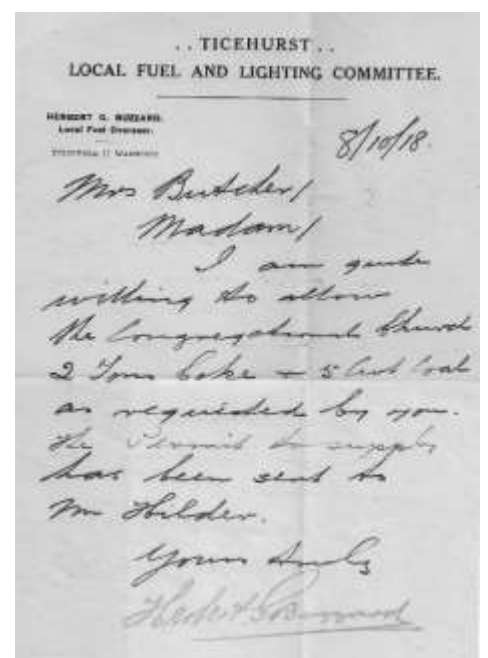 . . TICEHURST . .
LOCAL FUEL AND LIGHTING COMMITTEE.
HERBERT G. BUZZARD.
Local Fuel Overseer.
8/10/18.
Mrs Butcher/
Madam/
I am quite
willing to allow
the Congregational Church
2 Tons Coke + 5 Cwt Coal
as requided by you.
The Permit to supply
has been sent to
Mr Hilder.
Yours truly
Herbert G Buzzard